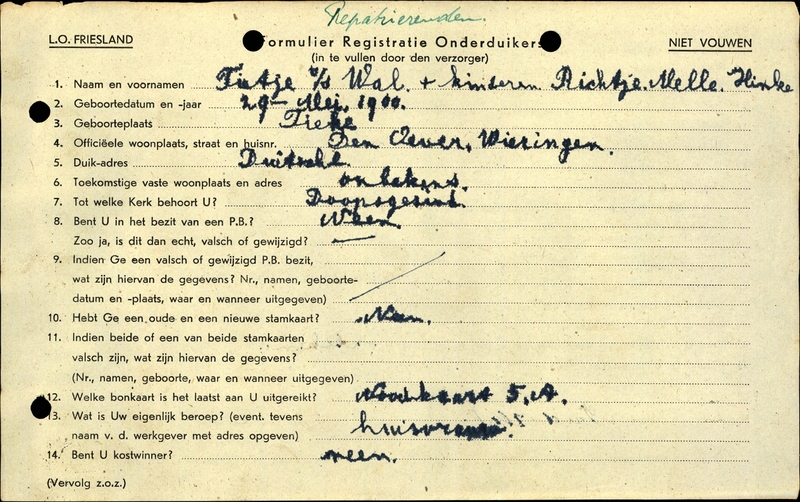 Repatrieerenden.
L.O. FRIESLAND Formulier Registratie Onderduikers NIET VOUWEN
(in te vullen door den verzorger)
1. Naam en voornamen Tietje v/d Wal. + kinderen. Richtje. Melle. Hinke
2. Geboortedatum en -jaar 29- Mei. 1900.
3. Geboorteplaats
4. Officiëele woonplaats, straat en huisnr. Den Oever, Wieringen.
5. Duik-adres
6. Toekomstige vaste woonplaats en adres onbekend.
7. Tot welke Kerk behoort U? Doopsgezind.
8. Bent U in het bezit van een P.B.? Neen.
Zoo ja, is dit dan echt, valsch of gewijzigd? —
9. Indien Ge een valsch of gewijzigd P.B. bezit,
wat zijn hiervan de gegevens? Nr., namen, geboorte-
datum en -plaats, waar en wanneer uitgegeven)
10. Hebt Ge een oude en een nieuwe stamkaart? Neen.
11. Indien beide of een van beide stamkaarten
valsch zijn, wat zijn hiervan de gegevens?
(Nr., namen, geboorte, waar en wanneer uitgegeven)
12. Welke bonkaart is het laatst aan U uitgereikt? Noodkaart 5.A.
13. Wat is Uw eigenlijk beroep? (event. tevens
naam v. d. werkgever met adres opgeven) huisvrouw.
14. Bent U kostwinner? neen.
(Vervolg z.o.z.)